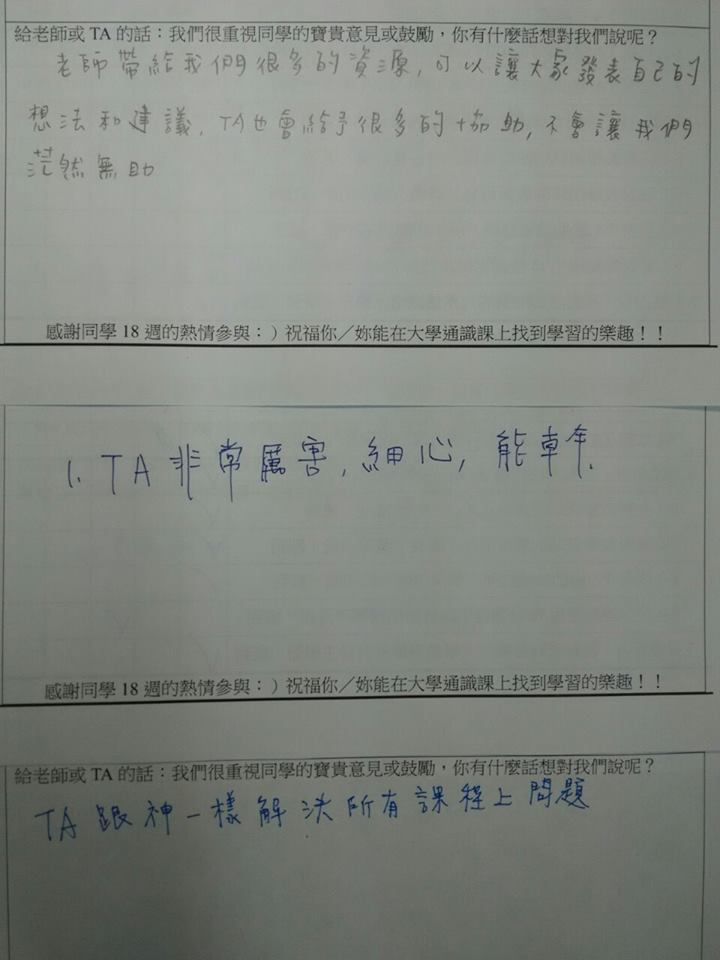 給老師或 TA 的話：我們很重視同學的寶貴意見或鼓勵，你有什麼話想對我們說呢？
老師帶給我們很多的資源，可以讓大家發表自己的
想法和建議，TA也會給予很多的協助，不會讓我們
茫然無助
感謝同學 18 週的熱情參與：）祝福你／妳能在大學通識課上找到學習的樂趣！！
1. TA 非常厲害，細心，能幹.
感謝同學 18 週的熱情參與：）祝福你／妳能在大學通識課上找到學習的樂趣！！
給老師或 TA 的話：我們很重視同學的寶貴意見或鼓勵，你有什麼話想對我們說呢？
TA 跟神一樣解決所有課程上問題